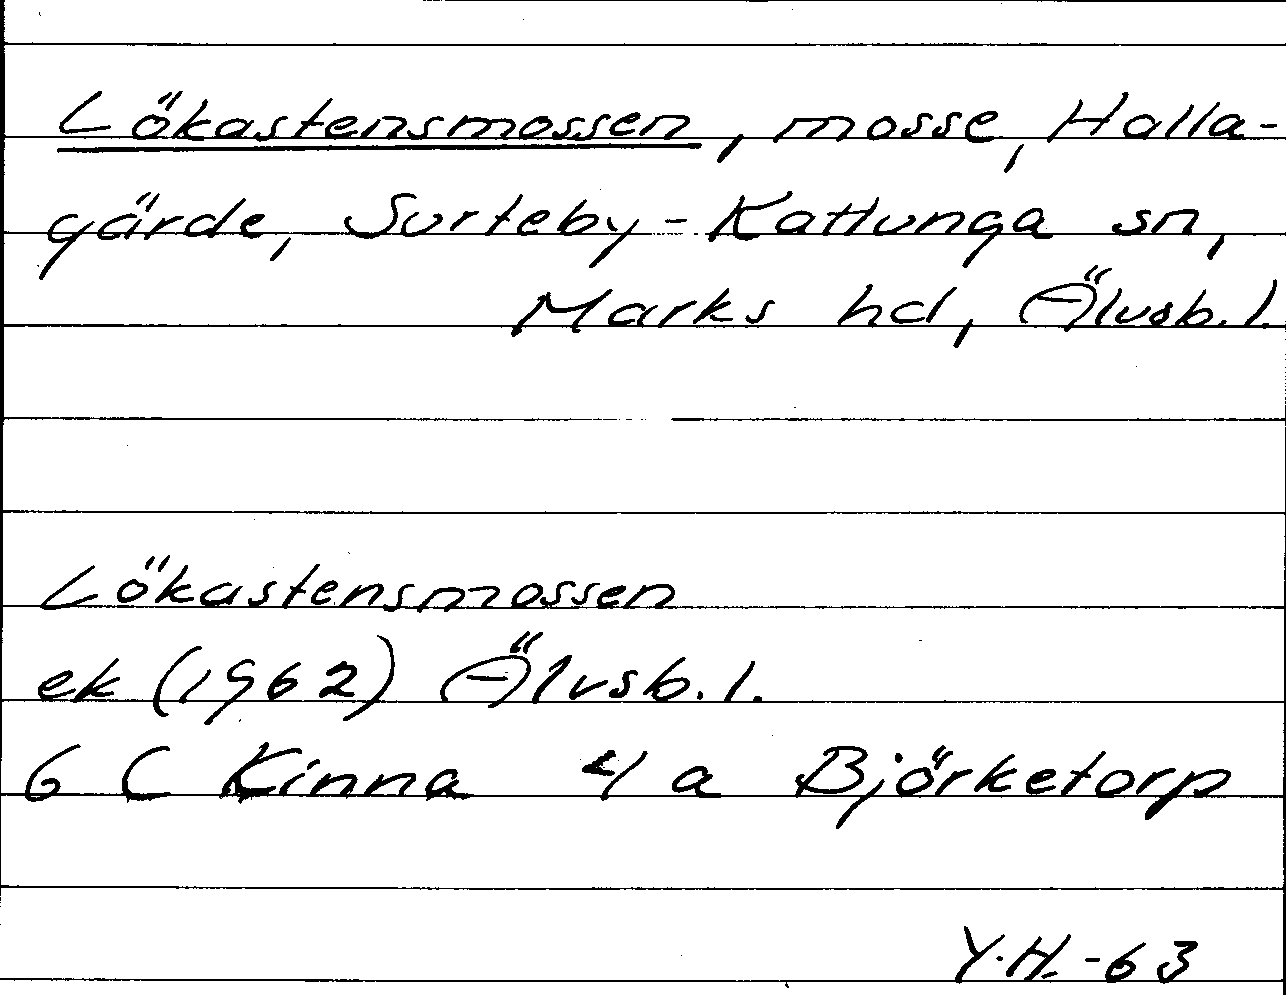 Lökastensmossen, mosse, Halla-
gärde, Surteby-Kattunga sn,
Marks hd, Älvsb. l.
Lökastensmossen
ek (1962) Älvsb. l.
6 C Kinna 4 a Björketorp
Y.H. -63